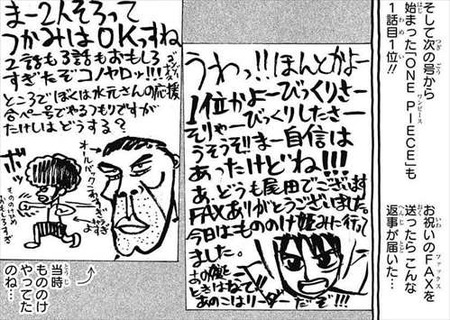 そして次の号から
始まった「ONE PIECE」も
1話目1位!!
お祝いのFAXを
送ったらこんな
返事が届いた…
うわっ!!ほんとかよー
1位かよーびっくりさー
そりゃーびっくりしたさー
うそうそ!!まー自信は
あったけどね!!!
あ、どうも尾田でございます
FAXありがとうございました。
今日はもののけ姫みに行って
ました。
あのこはリーダーだぞ!!!
まー2人そろって
つかみはOKっすね
2話も3話もおもしろ
すぎたぞコノヤロッ!!!
ところでぼくは水元さんの応援
合ペー号でやるつもりですが
たけしはどうする?
オールバックこわすぎ
ボッ
もののけ
おもしろすぎ
当時
もののけ
やってた
のね…